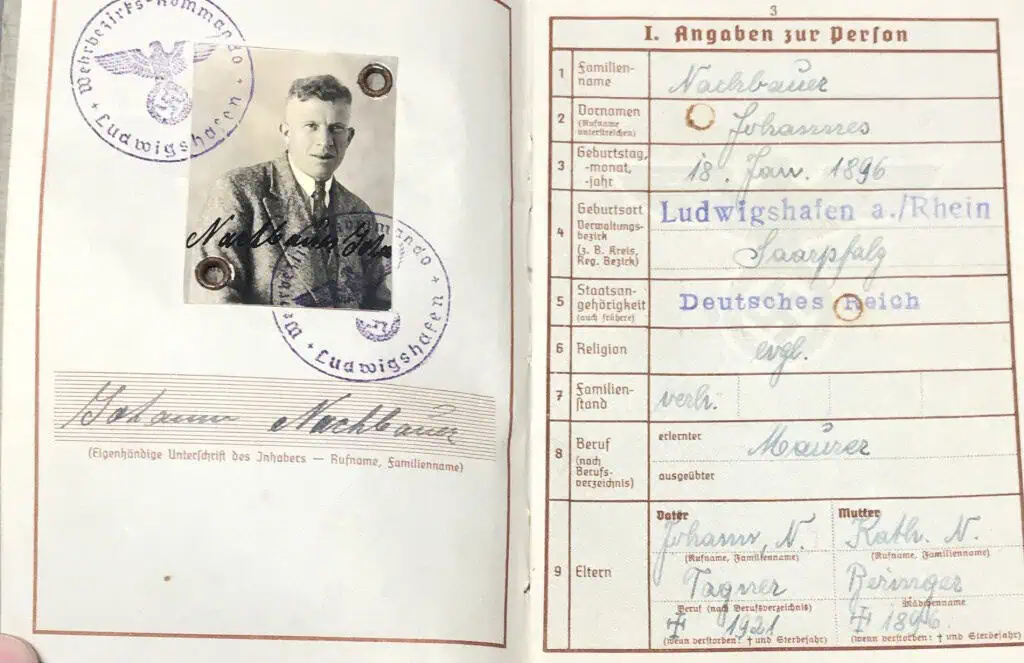 Wehrbezirks-Kommando
Ludwigshafen
Nachbauer
Wehrbezirks-Kommando
Ludwigshafen
Johann Nachbauer
(Eigenhändige Unterschrift des Inhabers — Rufname, Familienname)
3
I. Angaben zur Person
1 Familien-
name Nachbauer
2 Vornamen
(Rufname
unterstreichen) Johannes
3 Geburtstag,
-monat,
-jahr 18. Jan. 1896
4 Geburtsort Ludwigshafen a./Rhein
Verwaltungs-
bezirk
(z. B. Kreis,
Reg. Bezirk) Saarpfalz
5 Staatsan-
gehörigkeit
(auch frühere) Deutsches Reich
6 Religion evgl.
7 Familien-
stand verh.
8 Beruf
(nach
Berufs-
verzeichnis)
erlernter Maurer
ausgeübter
9 Eltern
Vater Mutter
Johann, N. Kath. N.
(Rufname, Familienname) (Rufname, Familienname)
Tagner Beringer
Beruf (nach Berufsverzeichnis) Mädchenname
† 1921 † 1896.
(wenn verstorben: † und Sterbejahr) (wenn verstorben: † und Sterbejahr)